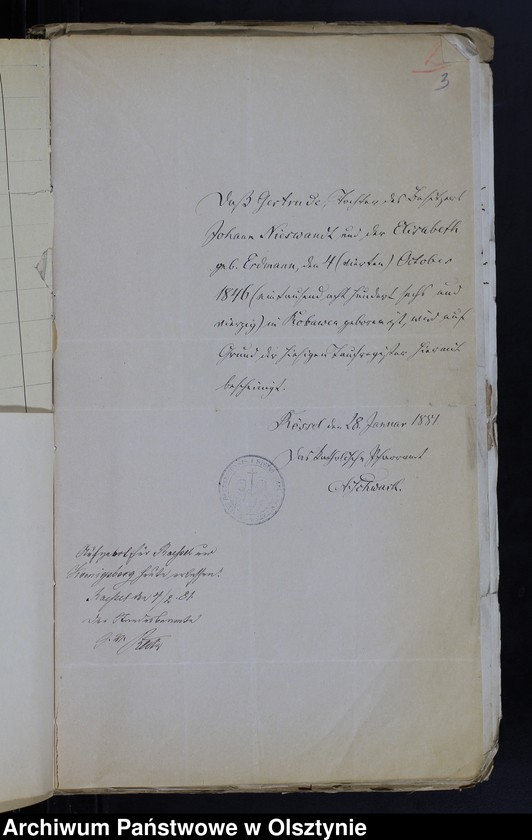 3
Daß Gertrude, Tochter des Besitzers
Johann Nieswandt und der Elisabeth
geb. Erdmann, den 4 (vierten) October
1846 (eintausend acht hundert sechs und
vierzig) in Robawen geboren ist, wird auf
Grund der hiesigen Taufregister hiermit
bescheinigt.
Rössel den 28. Januar 1881
Das katholische Pfarramt
A. Schwark.
Aufgebot für Roessel und
Koenigsberg heute erlassen.
Roessel den 4/2. 81.
Der Standesbeamte
Archiwum Państwowe w Olsztynie